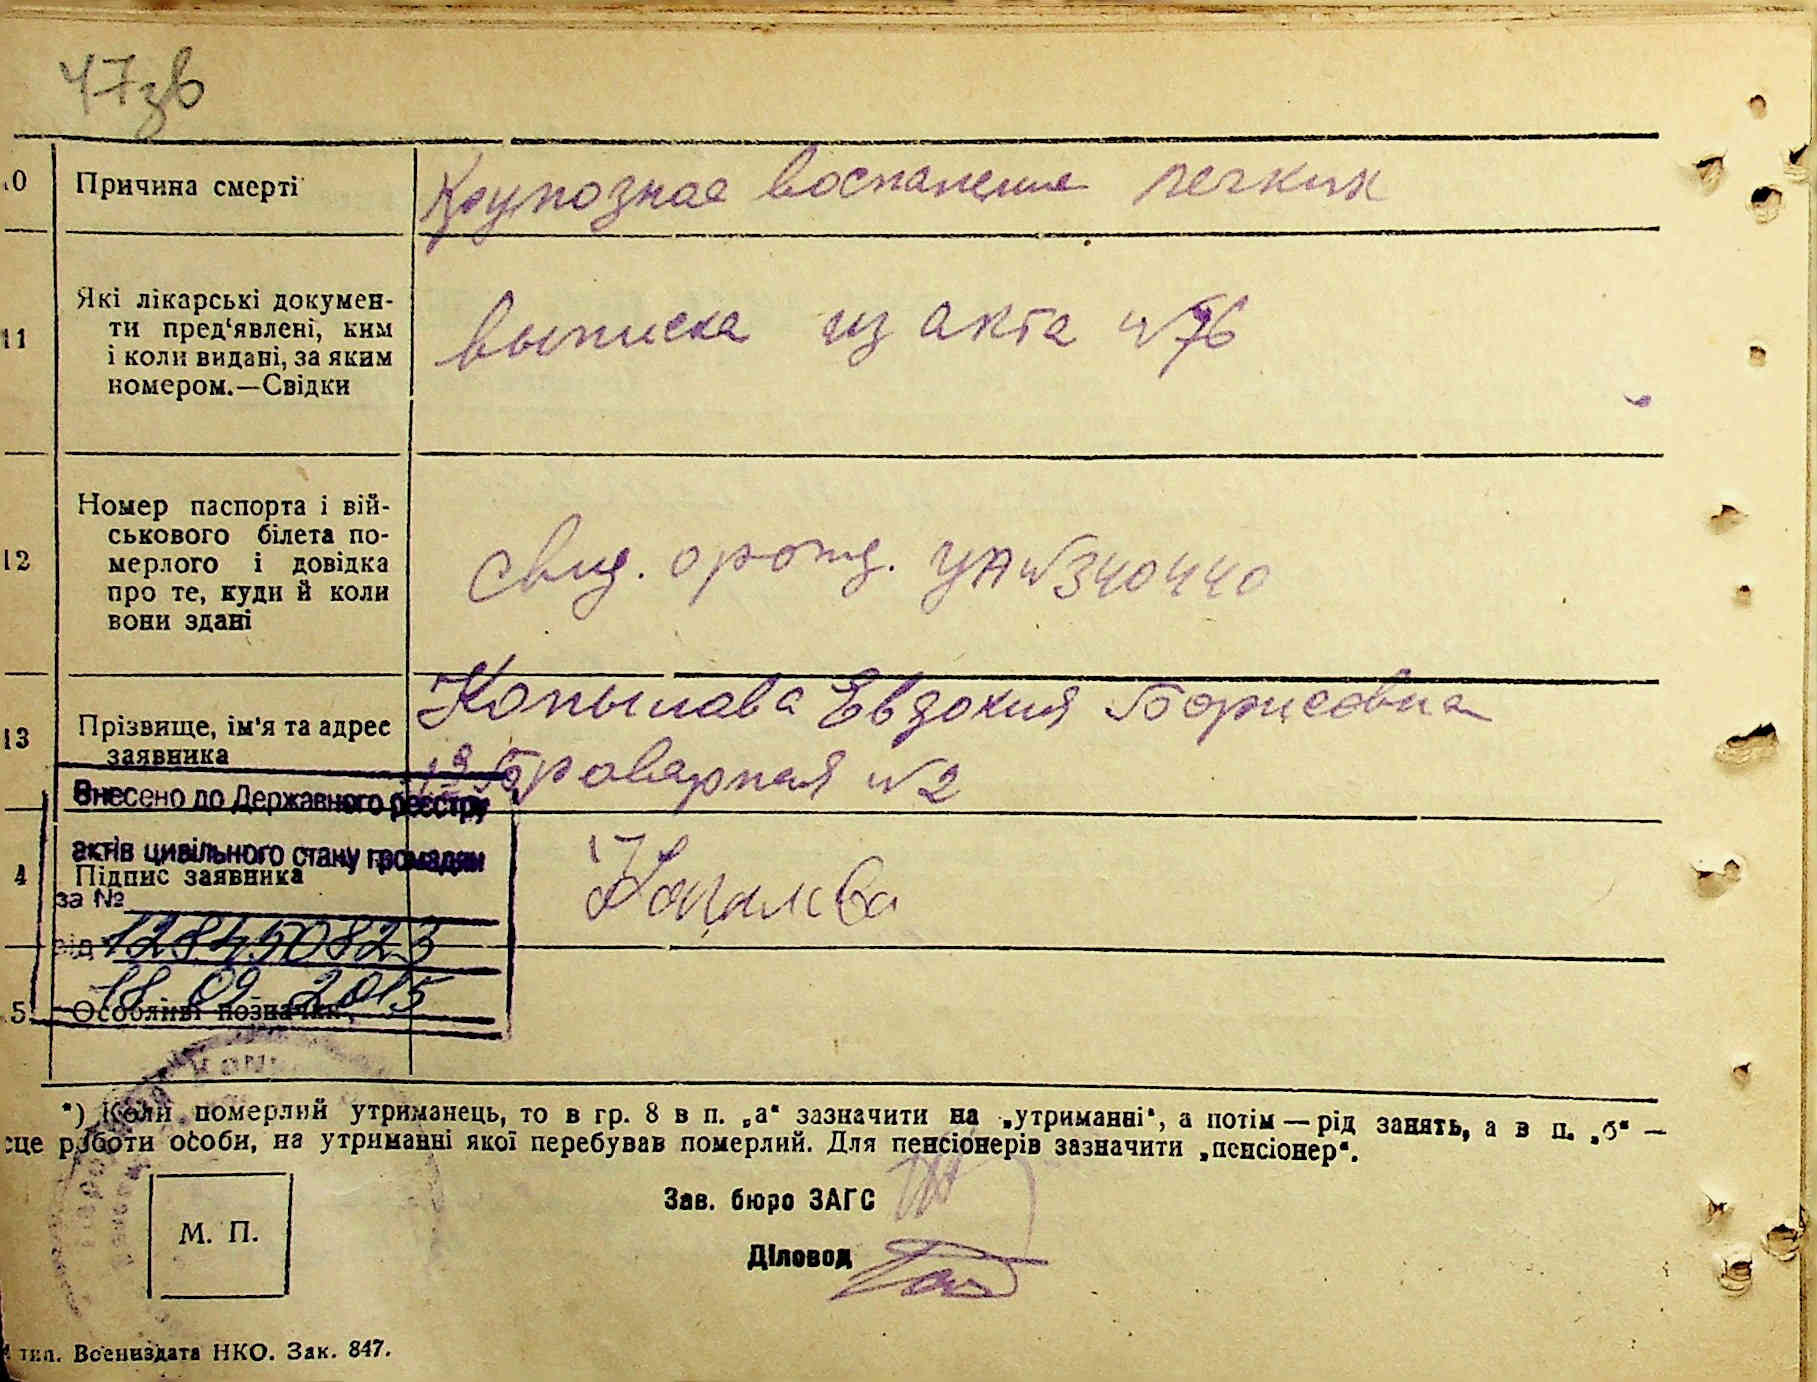 47зв
10 Причина смерті Крупозное воспаление легких
11 Які лікарські докумен-
ти пред'явлені, ким
і коли видані, за яким
номером.—Свідки
выписка из акта №76
12 Номер паспорта і вій-
ськового білета по-
мерлого і довідка
про те, куди й коли
вони здані
свид. о рожд. УА №340440
13 Прізвище, ім'я та адрес
заявника
Копылова Евдокия Борисовна
Броварная №2
Внесено до Державного реєстру
актів цивільного стану громадян
4 Підпис заявника Копылова
за №
від 128450823
18 09 2015
5 Особливі позначки
*) Коли померлий утриманець, то в гр. 8 в п. „а“ зазначити на „утриманні“, а потім — рід занять, а в п. „б“ —
сце роботи особи, на утриманні якої перебував померлий. Для пенсіонерів зазначити „пенсіонер“.
Зав. бюро ЗАГС
М. П.
Діловод
тип. Воениздата НКО. Зак. 847.